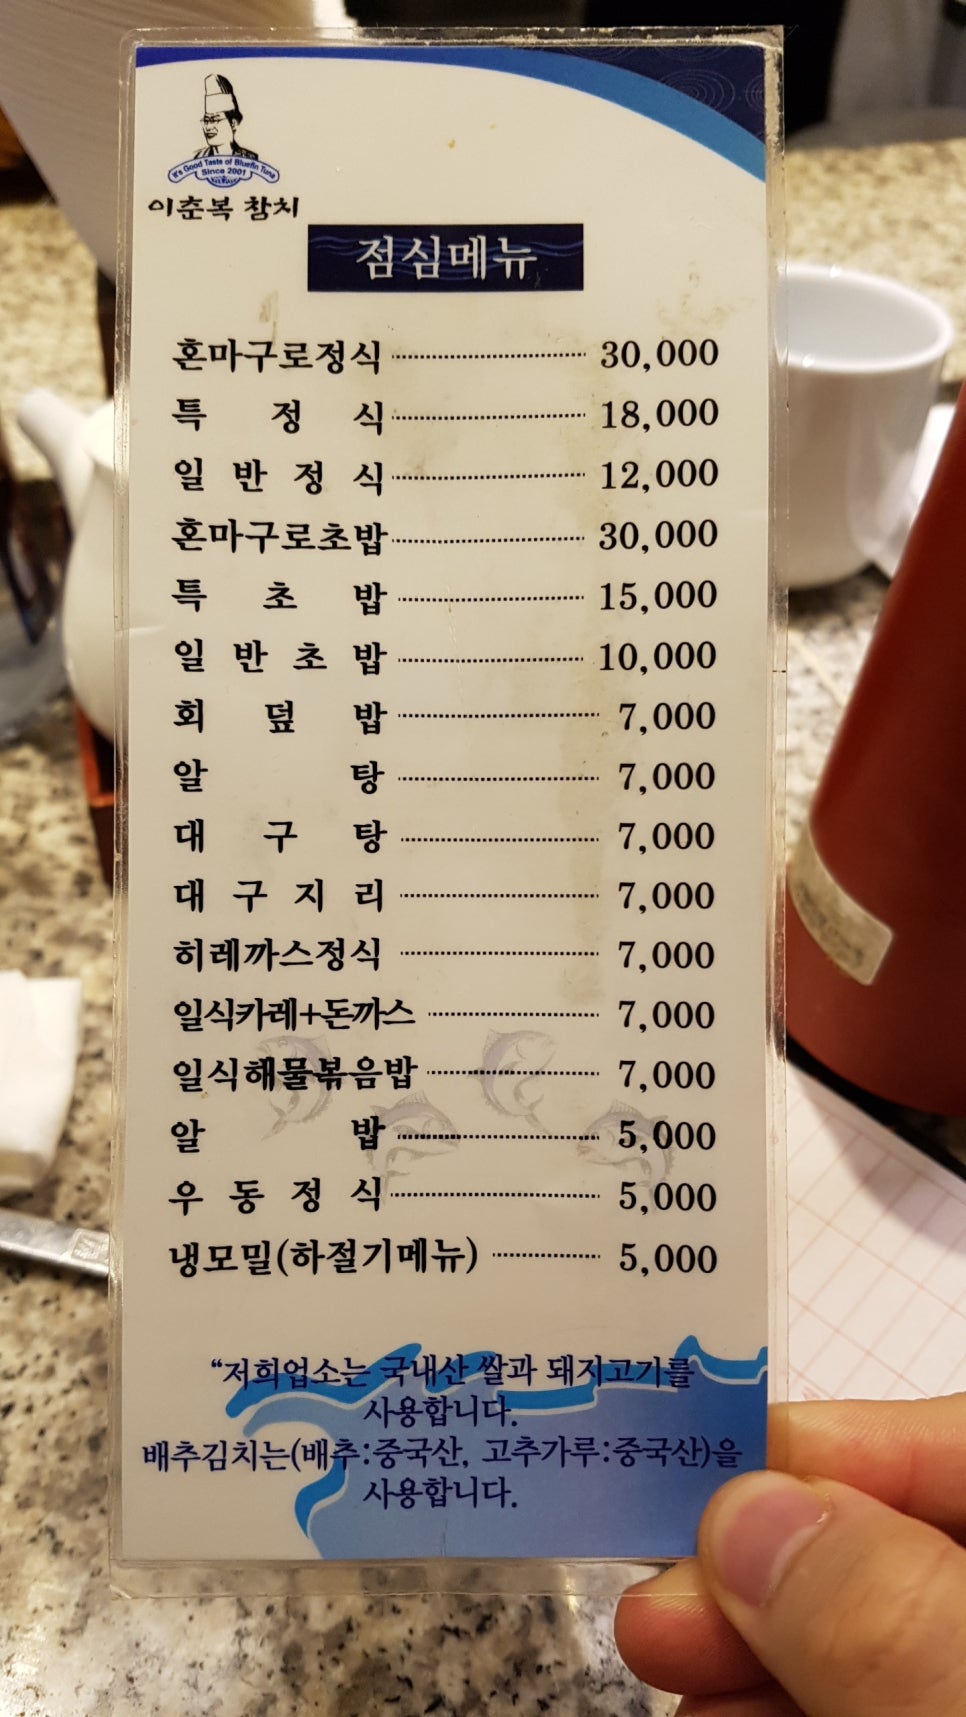 It's Good Taste of Bluefin Tuna
Since 2001
이춘복 참치
점심메뉴
혼마구로정식 30,000
특정식 18,000
일반정식 12,000
혼마구로초밥 30,000
특초밥 15,000
일반초밥 10,000
회덮밥 7,000
알탕 7,000
대구탕 7,000
대구지리 7,000
히레까스정식 7,000
일식카레+돈까스 7,000
일식해물볶음밥 7,000
알밥 5,000
우동정식 5,000
냉모밀(하절기메뉴) 5,000
“저희업소는 국내산 쌀과 돼지고기를
사용합니다.
배추김치는(배추:중국산, 고추가루:중국산)을
사용합니다.